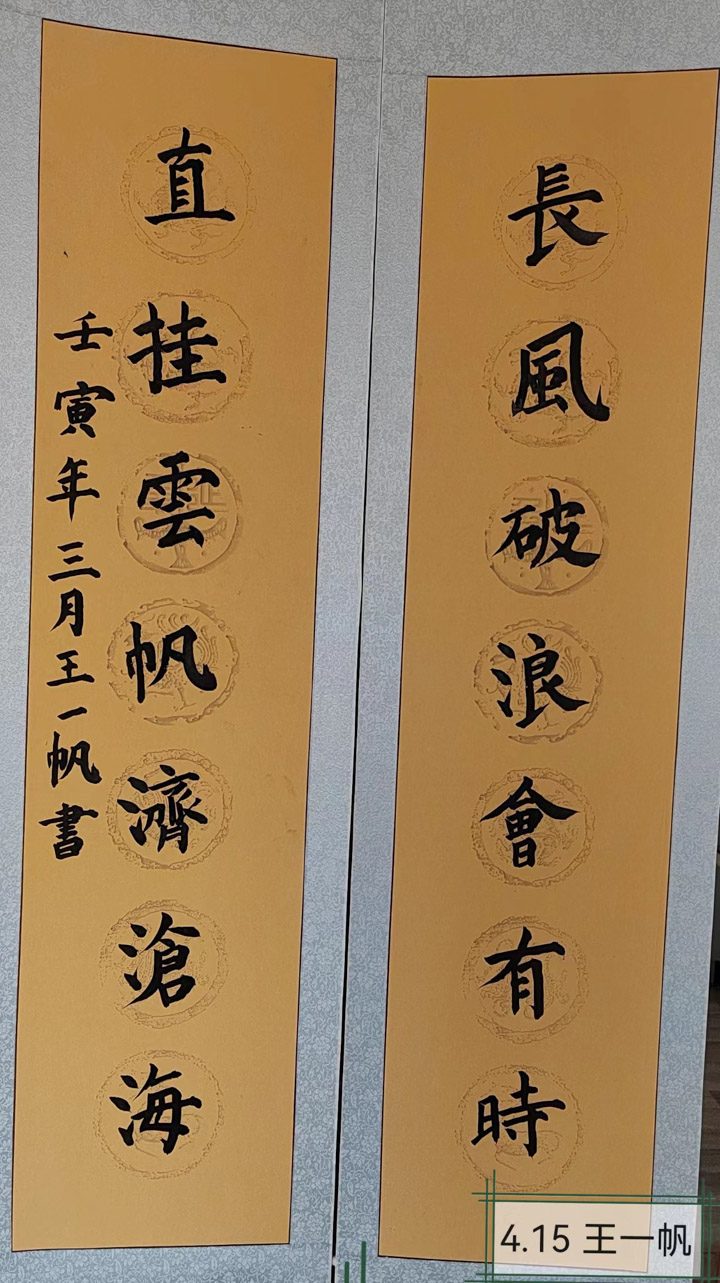 長風破浪會有時
直挂雲帆濟滄海
壬寅年三月王一帆書
4.15 王一帆